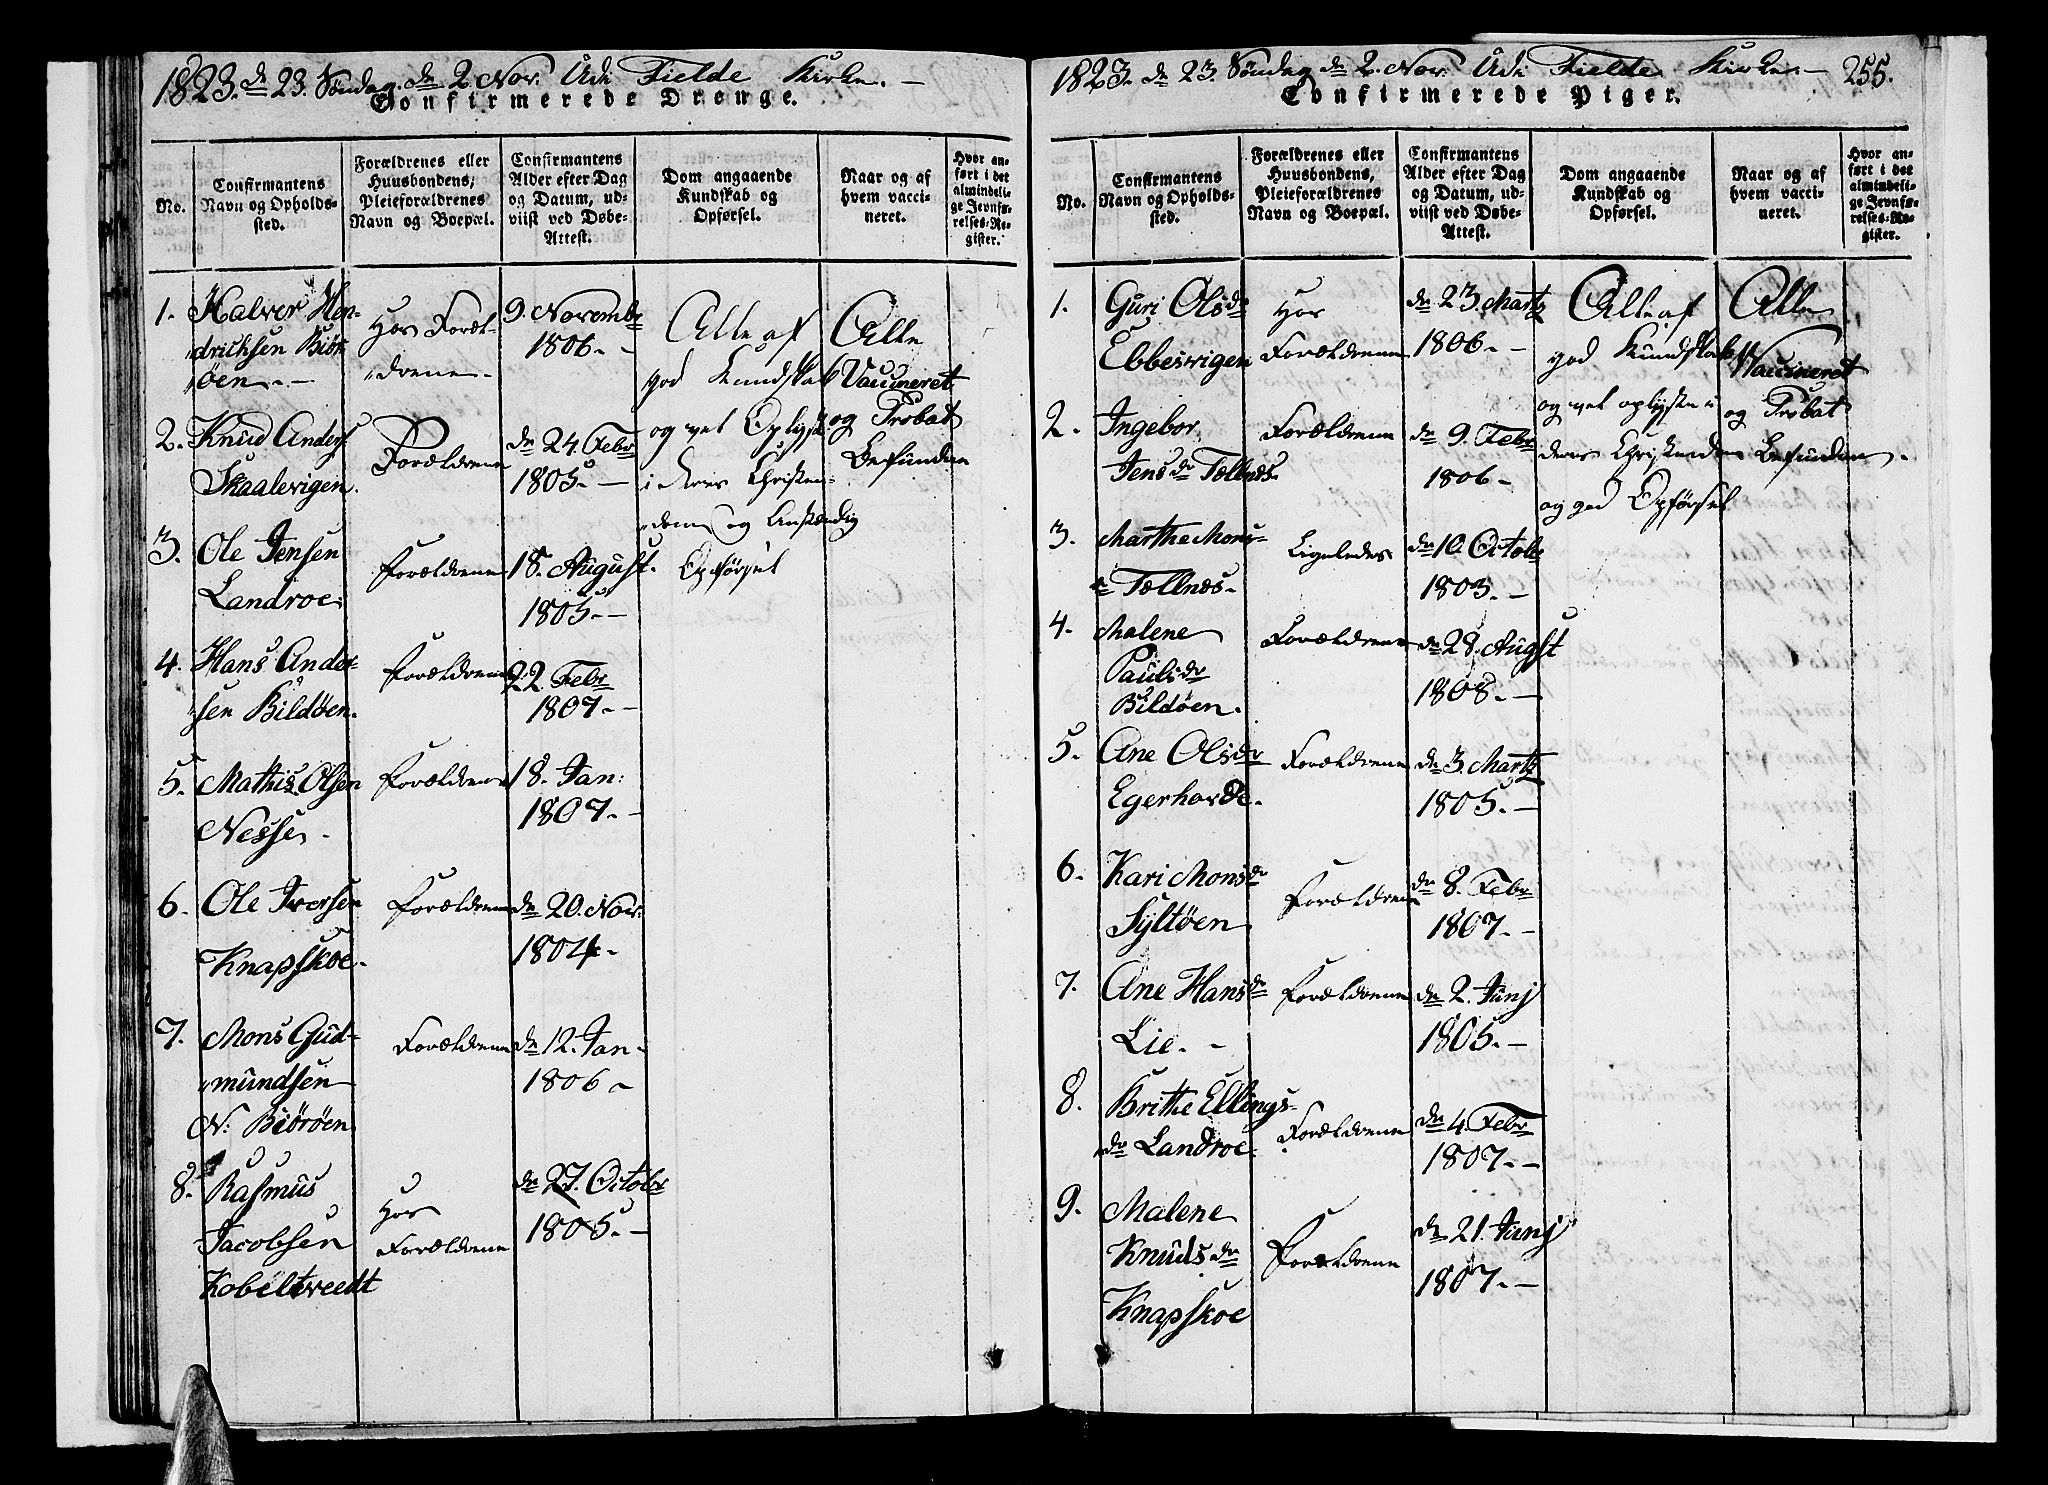 1823. dn 23. Søndag dn 2. Nov. Udi Fielde Kirke. —
Confirmerede Drenge.
No.
Confirmantens
Navn og Opholds-
sted.
Forældrenes eller
Huusbondens,
Pleieforældrenes
Navn og Boepæl.
Confirmantens
Alder efter Dag
og Datum, ud-
viist ved Døbe-
Attest.
Dom angaaende
Kundskab og
Opførsel.
Naar og af
hvem vacci-
neret.
Hvor an-
ført i det
almindeli-
ge Jevnfø-
relses-Re-
gister.
1. Halver Hen-
drichsen Biør
øen. —
Hos Foræl-
drene.
9. Novembr
1806. —
Alle af
god Kundskab
og vel Oplyst
i deres Christen-
dom og Anstændig
Opførsel
Alle
Vaccineret
og Probat
Befunden
2. Knud Anders
Skaalevigen.
Forældrene
dn 24. Febr
1805. —
3. Ole Jensen
Landroe.
Forældrene
18. August.
1805. —
4. Hans Ander-
sen Bildøen.
Forældrene
22 Febr
1807. —
5. Mathis Olsen
Nesse.
Forældrene
18. Jan:
1807. —
6. Ole Iversen
Knapskoe.
Forældrene
dn 20. Nov.
1804.
7. Mons Gud-
mundsen
N: Biørøen
Forældrene
dn 12. Jan
1806
8. Rasmus
Jacobsen
Kobeltveedt
Hos
Forældrene
dn 27. Octobr
1805. —
1823. dn 23. Søndag dn 2. Nov. Udi Fielde Kirke. — 255.
Confirmerede Piger.
No.
Confirmantens
Navn og Opholds-
sted.
Forældrenes eller
Huusbondens,
Pleieforældrenes
Navn og Boepæl.
Confirmantens
Alder efter Dag
og Datum, ud-
viist ved Døbe-
Attest.
Dom angaaende
Kundskab og
Opførsel.
Naar og af
hvem vacci-
neret.
Hvor an-
ført i det
almindeli-
ge Jevnfø-
relses-Re-
gister.
1. Guri Olsdr
Ebbesvigen
Hos
Forældrene
dn 23. Martz
1806. —
Alle af
god Kundskab
og vel oplyste i
deres Christendom
og god Opførsel
Alle
Vaccineret
og Probat
befunden.
2. Ingebor
Jensdr Tællnes.
Forældrene
dn 9. Febr
1806
3. Marthe Mons-
dr Tællnes.
Ligeledes
dn 10. Octobr
1803. —
4. Malene
Paulsdr
Bildøen.
Forældrene
dn 28. Augst
1808. —
5. Ane Olsdr
Egerhorde.
Forældrene
dn 3. Martz
1805. —
6. Kari Monsdr
Syltøen
Forældrene
dn 8. Febr
1807. —
7. Ane Hansdr
Lie. —
Forældrene
dn 2. Junj
1805. —
8. Brithe Ellings-
dr Landroe.
Forældrene
dn 4. Febr
1807. —
9. Malene
Knudsdr
Knapskoe
Forældrene
dn 21. Junj
1807. —